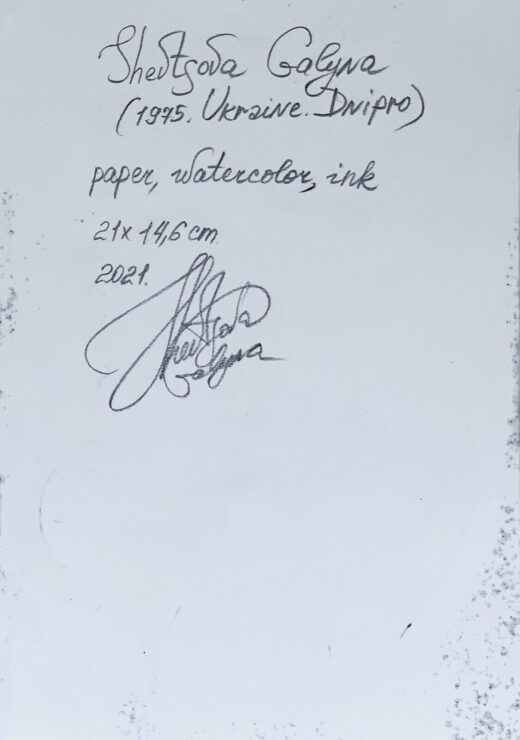 Shevtsova Galyna
(1975. Ukraine. Dnipro)
paper, watercolor, ink
21x14,6 cm.
2021.
Shevtsova
Galyna